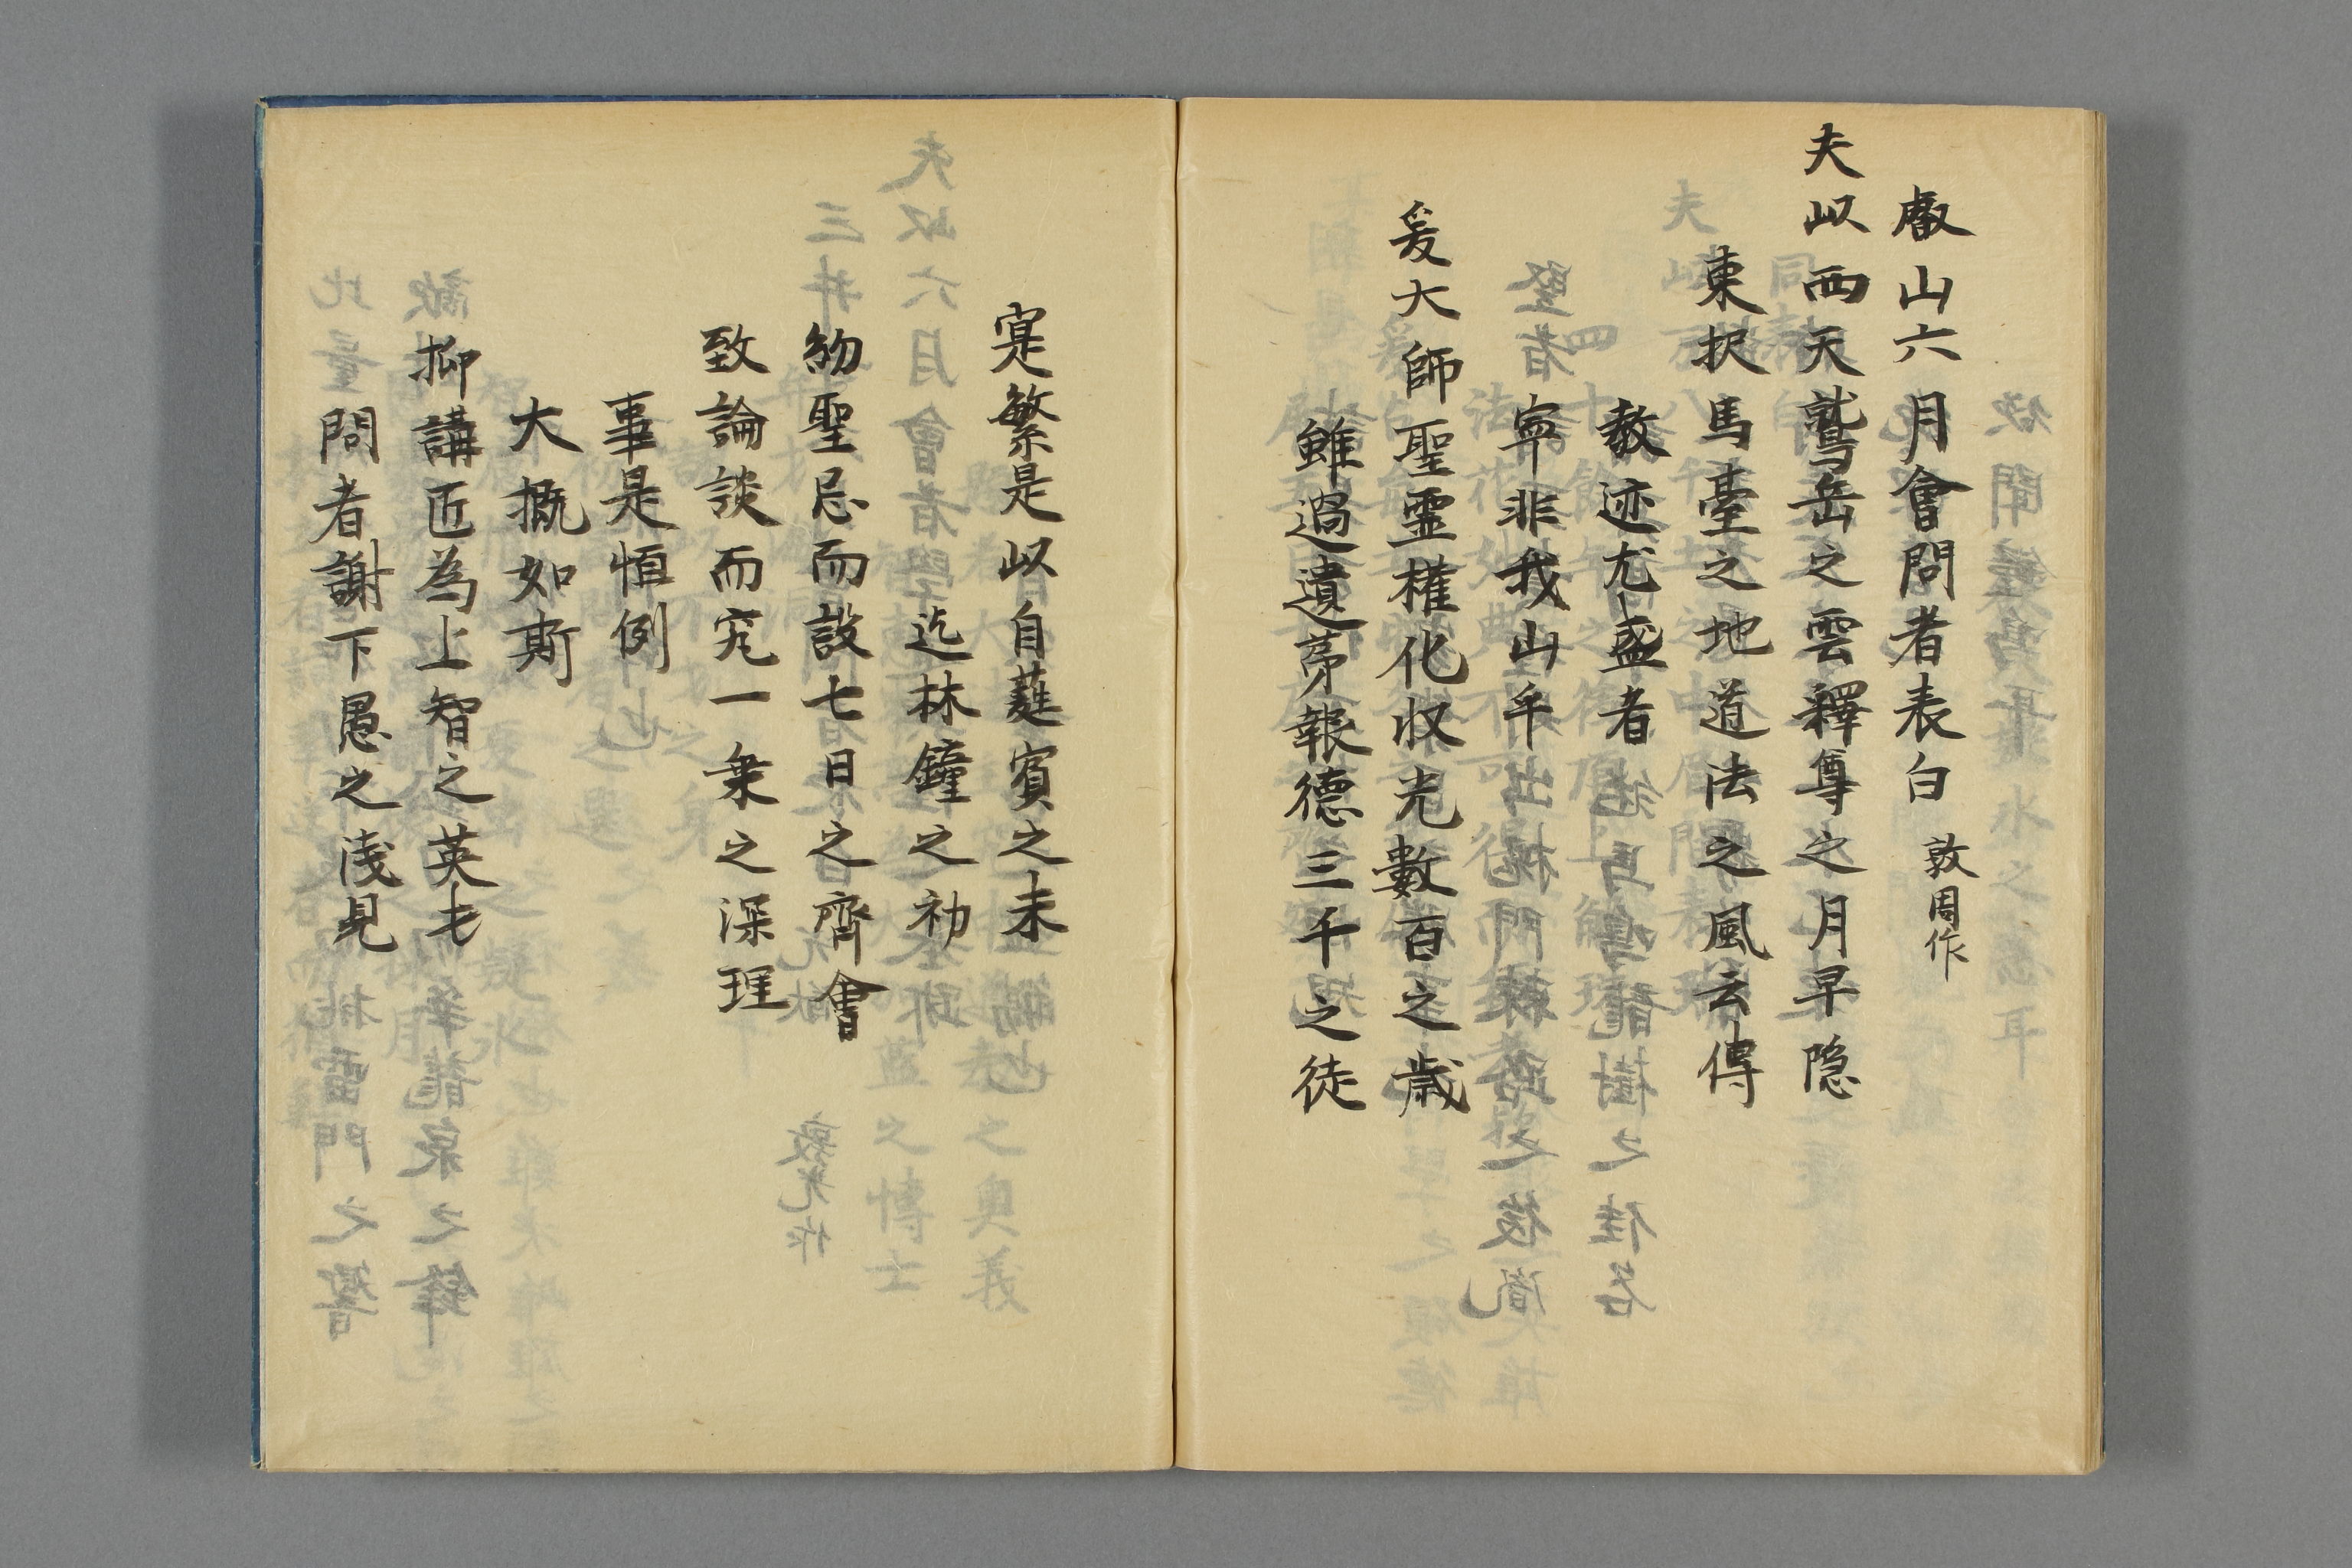 叡山六月會問者表白 敦周作
夫以西天鷲岳之雲釋尊之月早隠
東択馬臺之地道法之風云傳
教迹尤盛者
寧非我山乎
爰大師聖霊權化収光數百之歳
雖過遺芳報德三千之徒
寔繁是以自蕤賓之未
迄林鐘之初
紗聖忌而設七日之齊會
致論談而究一乗之深理
事是恒例
大概如斯
抑講匠為上智之英才
問者謝下愚之淺見